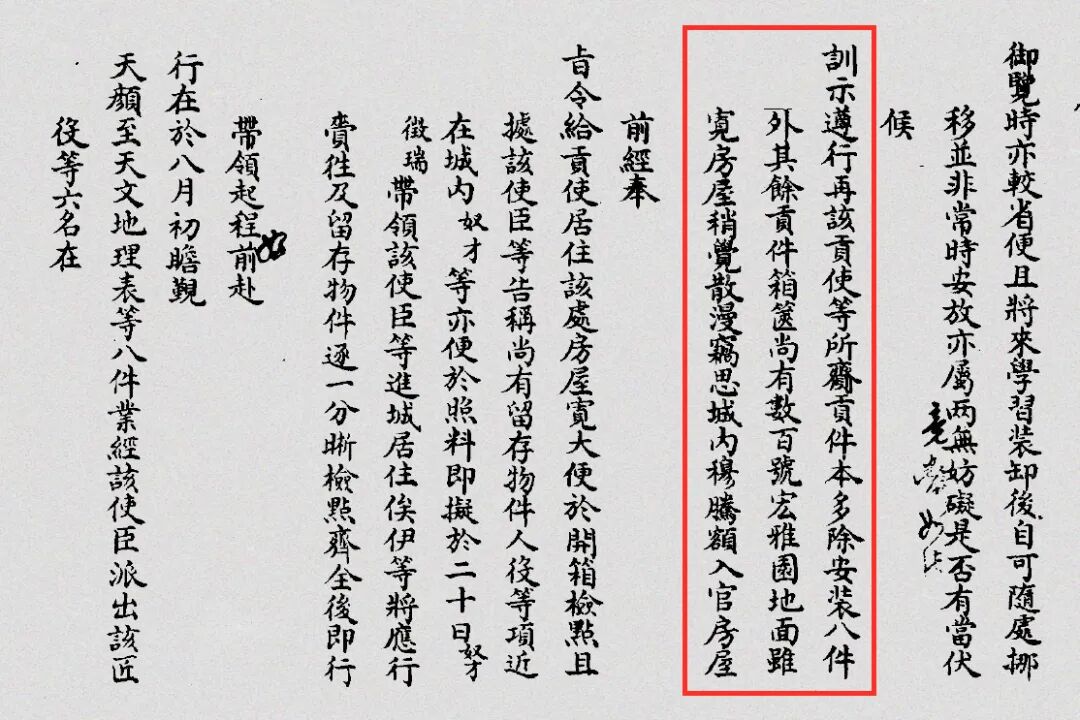 御覽時亦較省便且將來學習装卸後自可隨處挪
移並非常時安放亦屬两無妨礙是否有當伏
候
訓示遵行再該貢使等所齎貢件本多除安装八件
外其餘貢件箱篋尚有數百號宏雅園地面雖
寬房屋稍覺散漫竊思城内穆騰額入官房屋
前經奉
旨令給貢使居住該處房屋寬大便於開箱檢點且
據該使臣等告稱尚有留存物件人役等項近
在城内奴才等亦便於照料即擬於二十日奴才
徵瑞帶領該使臣等進城居住俟伊等將應行
賷徃及留存物件逐一分晰檢點齊全後即行
帶領起程前赴
行在於八月初瞻覲
天顔至天文地理表等八件業經該使臣派出該匠
役等六名在